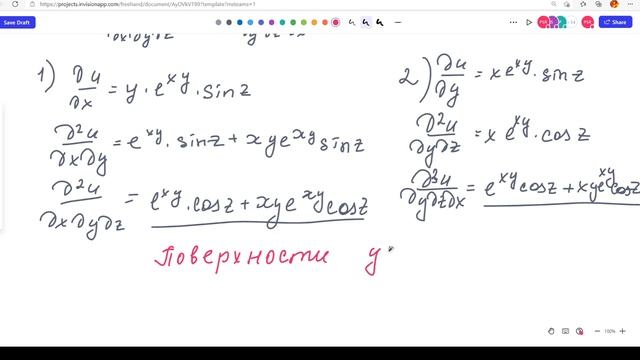 projects.invisionapp.com/freehand/document/AyOVkVT99?template?meteams=1
Save Draft
Share
1) ∂u/∂x = y · e^xy · sin z
∂²u/∂x∂y = e^xy · sin z + x y e^xy sin z
∂²u/∂x∂y∂z = e^xy · cos z + x y e^xy cos z
2) ∂u/∂y = x e^xy · sin z
∂²u/∂y∂z = x e^xy · cos z
∂³u/∂y∂z∂x = e^xy cos z + x y e^xy cos z
Поверхности у
100%